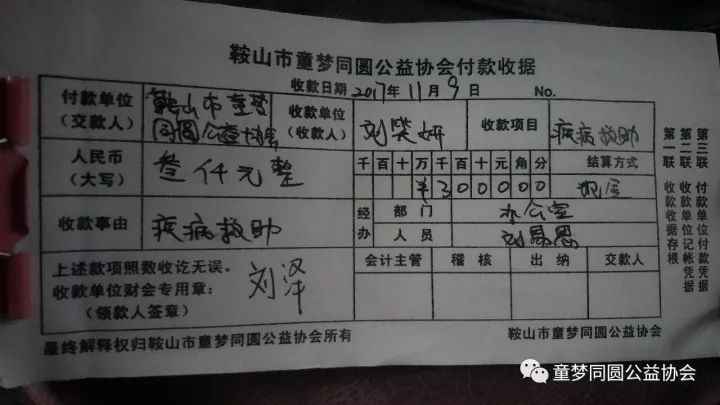 鞍山市童梦同圆公益协会付款收据
收款日期 2017年 11月 9日 No.
付款单位（交款人） 鞍山市童梦同圆公益协会 收款单位（收款人） 刘笑妍 收款项目 疾病救助
人民币（大写） 叁仟元整 千百十万千百十元角分 结算方式
¥300000 现金
收款事由 疾病救助 经办 部门 办公室
人员 刘易恩
上述款项照数收讫无误。 会计主管 稽核 出纳 交款人
收款单位财会专用章：
（领款人签章） 刘泽
最终解释权归鞍山市童梦同圆公益协会所有 鞍山市童梦同圆公益协会
第一联 收款单位存根
第二联 收款单位记帐凭据
第三联 付款单位付款凭据
童梦同圆公益协会